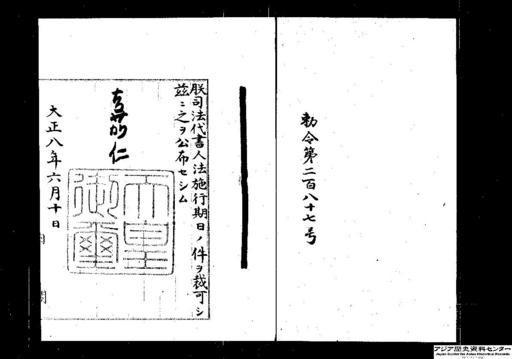 勅令第二百八十七号
朕司法代書人法施行期日ノ件ヲ裁可シ
茲ニ之ヲ公布セシム
嘉仁
天皇
御璽
大正八年六月十日
アジア歴史資料センター
Japan Center for Asian Historical Records